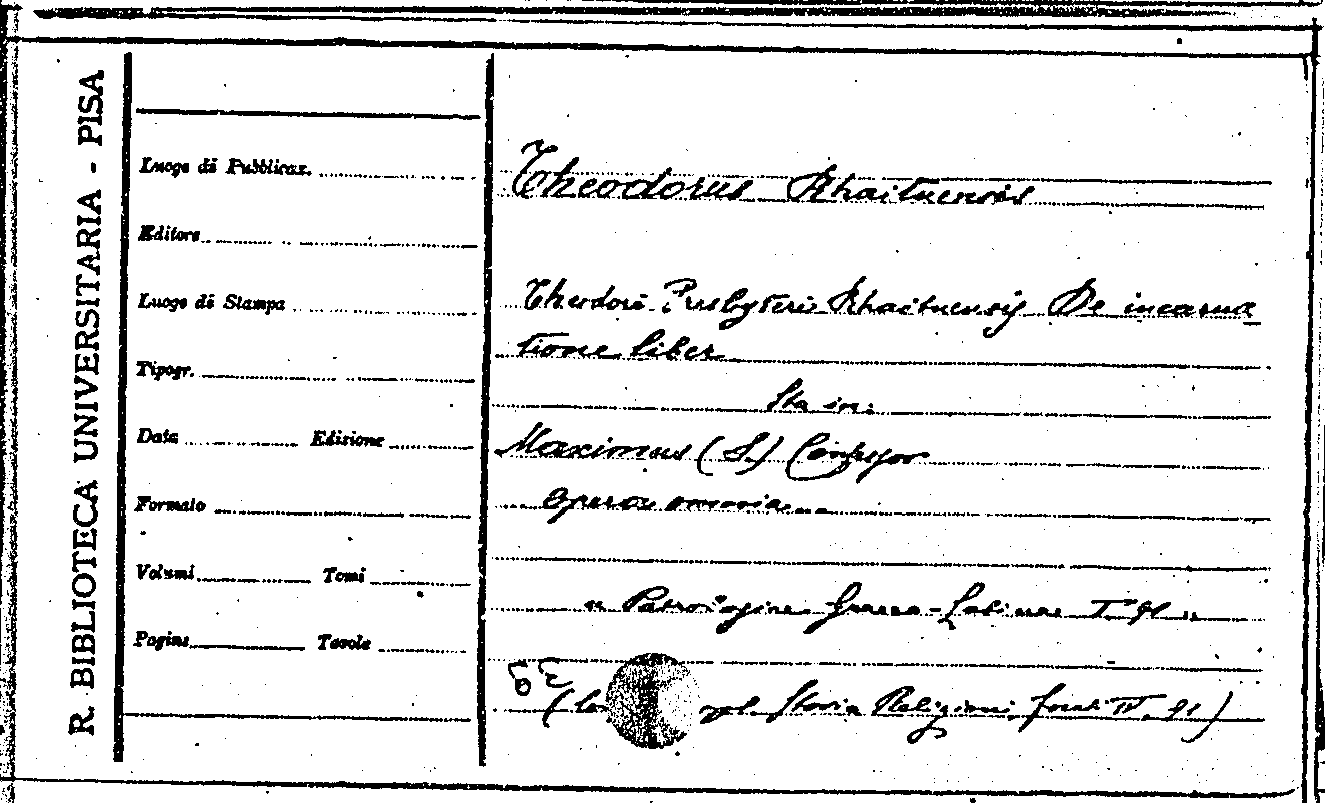 R. BIBLIOTECA UNIVERSITARIA - PISA
Luogo di Pubblicaz.
Editore
Luogo di Stampa
Tipogr.
Data Edizione
Formato
Volumi Tomi
Pagine Tavole
Theodorus Rhaituensis
Theodori Presbyteri Rhaituensis De incarna
tione liber
Sta in:
Maximus (S.) Confessor
Opera omnia...
" Patrologiae Graeca-Latinae T. 91 "
( Storia Religioni, IV. 91)